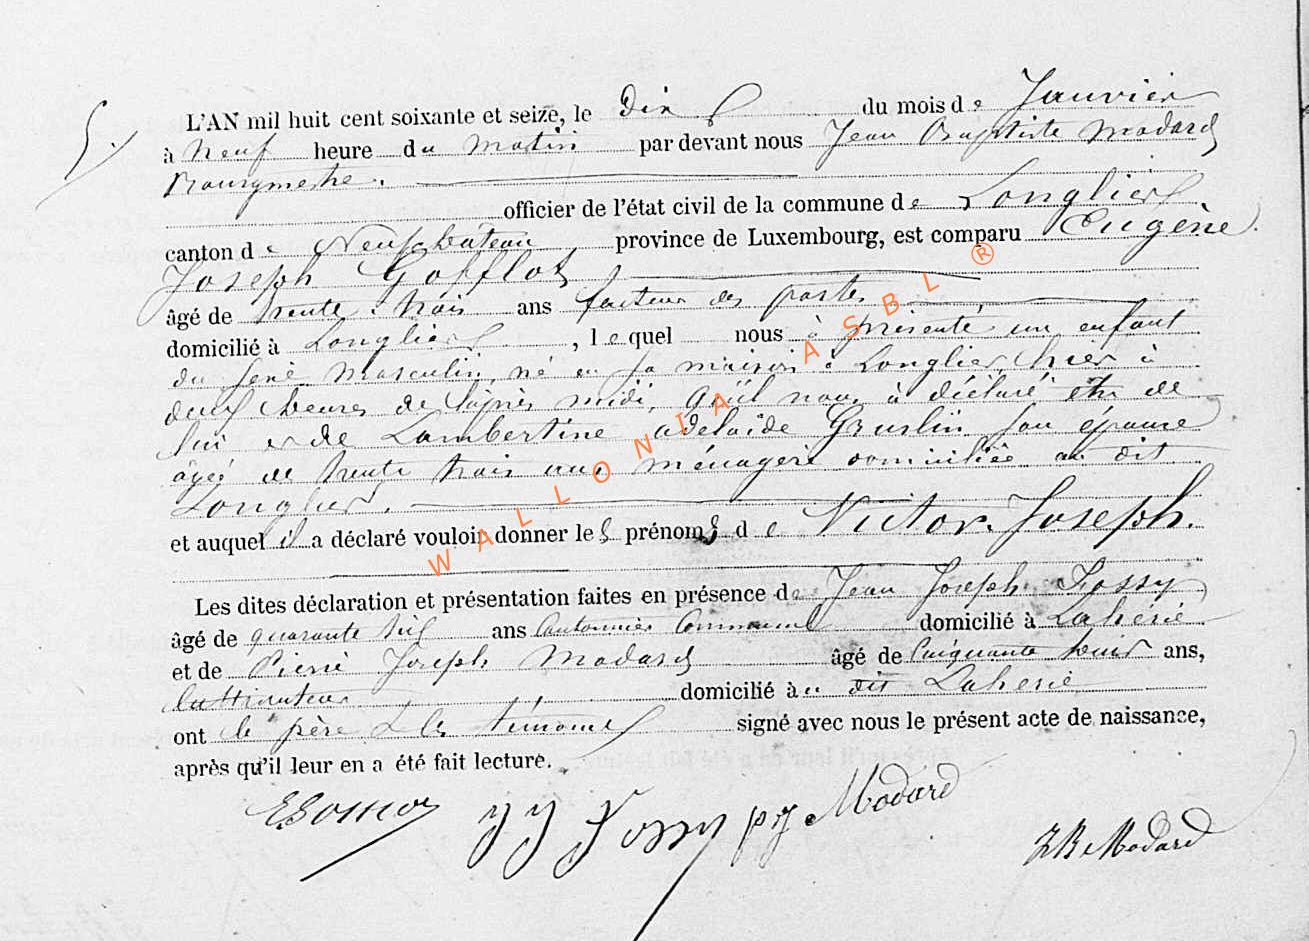 5.
L'AN mil huit cent soixante et seize, le Dix du mois de Janvier
à Neuf heure du matin par devant nous Jean Baptiste Modard
Bourgmestre.
officier de l'état civil de la commune de Longlier
canton de Neufchâteau province de Luxembourg, est comparu Eugène
Joseph Gofflot
âgé de trente trois ans facteur des postes
domicilié à Longlier, lequel nous à présenté un enfant
du sexe masculin, né en sa maison à Longlier, hier à
deux heures de l'après midi, qu'il nous à déclaré etre de
lui et de Lambertine adelaïde Gruslin son épouse
âgée de trente trois ans ménagère domiciliée au dit
Longlier.
et auquel il a déclaré vouloir donner les prénoms de Victor. Joseph.
Les dites déclaration et présentation faites en présence de Jean Joseph Fossy
âgé de quarante ans Cantonnier Communal domicilié à Laherie
et de Pierre Joseph Modard âgé de Cinquante ans,
Cultivateur domicilié au dit Laherie
ont le père & les témoins signé avec nous le présent acte de naissance,
après qu'il leur en a été fait lecture.
JJ Fossy pJ Modard
JB Modard
WALLONIA ASBL ®